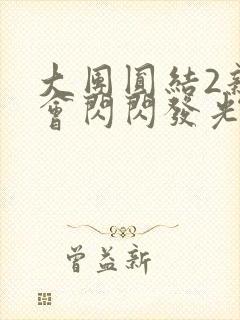 大團圓結2新
會閃閃發光
曾益新